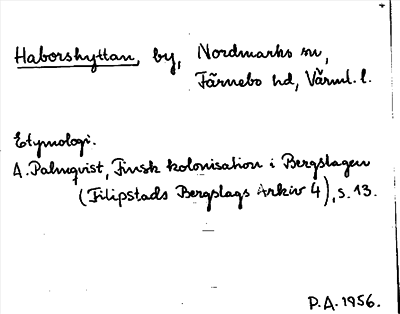 Haborshyttan, by, Nordmarks sn,
Färnebo hd, Värml. l.
Etymologi.
A. Palmqvist, Finsk kolonisation i Bergslagen
(Filipstads Bergslags Arkiv 4), s. 13.
P.A. 1956.